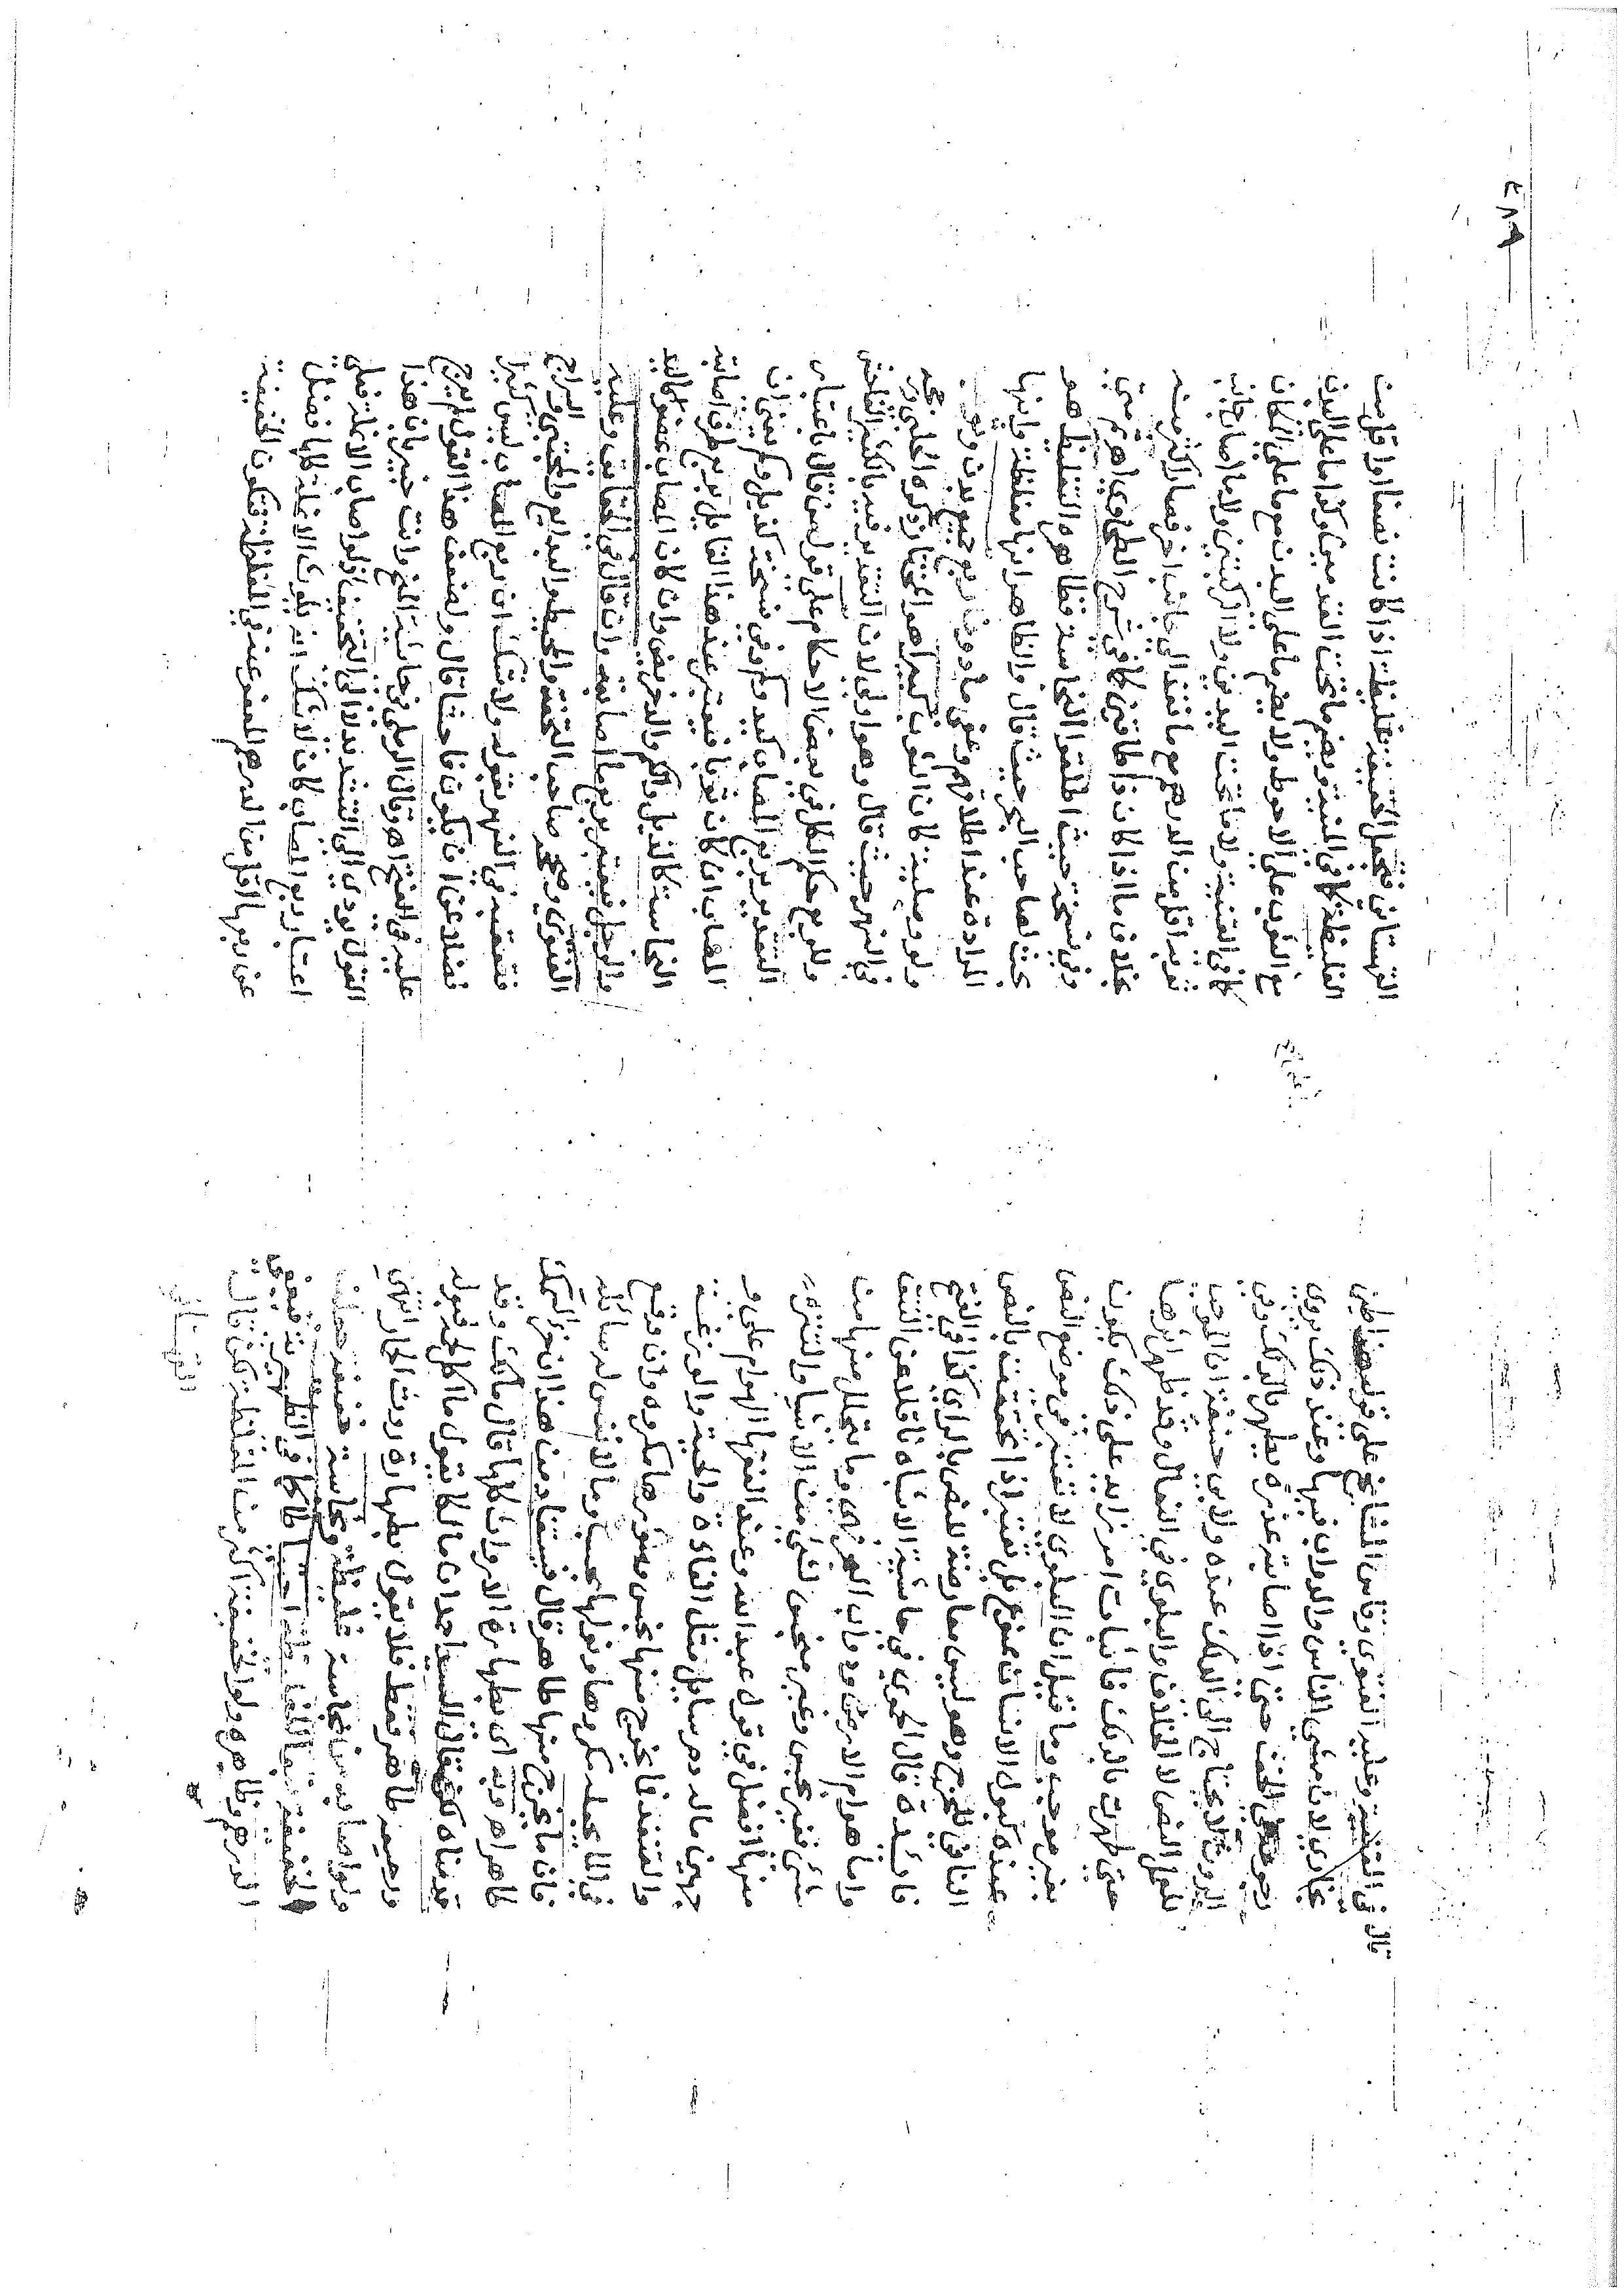 قال في القنية وعليه الفتوى وقاس المشايخ على قوله هذا طين
بخارى لان ممشى الناس والدواب فيها وعند ذلك يروى
رجوعه في الخف حتى اذا اصابته عذرة يطهر بالدلك وفي
الروث لا يحتاج الى الدلك عنده ولابي حنيفة ان الموجب
للعمل النص لا الخلاف والبلوى في النعال وقد ظهر اثرها
حتى طهرت بالدلك فاثبات امر زايد على ذلك يكون
بغير موجب وما قيل ان البلوى لا تعتبر في موضع النص
عنده كبول الانسان ممنوع بل تعتبر اذا تحققت بالنص
النافي للحرج وهو ليس معارضة للنص بالراى كذا في الفتح
فائدة قال الحموي في حاشية الاشباه ناقلا عن النتف
واما هوام الارض ودواب البحر وما يتحلل منها من
شئ فغير نجس وغير منجس لشئ من الاشيا والتنزه
منها افضل في قول عبد الله وعند الفقها الهوام على و
جهين ماله دم سايل مثل الفارة والحية والوزغة
والقنفذ فما يخرج منها نجس وسؤرها مكروه وان وقع
في الما يجعله مكروها وبولها نجس وما لا نفس له سائلة
فان ما يخرج منها طاهر قال فيستفاد من هذا ان خرؤ العلق
طاهر اهـ وفيه اى بطهارة الارواث كلها قال مالك وقد
قدمناه لكن قال السيد احد ان مالكا يقول ما اكل لحمه فبوله
ورجيعه طاهر فقط فلا يقول بطهارة روث الحمار انتهى
ولو اصابه من نجاسة غليظة ونجاسة خفيفة جعلت
الخفيفة تبعا للغليظة احتياطا كما في الظهيرية فيعفى
الدرهم وظاهره ولو الخفيفة اكثر من الغليظة لكن قال
القهستاني
٤٨٩
القهستاني فتجعل الخفيفة غليظة اذا كانت نصفا او اقل من
الغليظة كما في المنية ويضم ما تحت القدمين وكذا ما على البدن
مع الثوب على الاحوط ولا يضم ما على البدن مع ما على المكان
كما في القنية ولا ما تحت اليدين ولا الركبتين ولا ما اصاب جانب
ثوبه اقل من الدرهم مع ما نفذ الى جانب اخر فصار اكثر منه
بخلاف ما اذا كان ذا طاقين كما في شرح الطحاوي اهـ ثم متى
وفي نسخة حيث اطلقوا النجاسة فظاهره التغليظ هو
بحث لصاحب البحر حيث قال والظاهر انها مغلظة وانها
المرادة عند اطلاقهم وعفي ما دون ربع جميع بدن وثوب
ولو وصلية كان الثوب كبيرا هو المختار ذكره الحلبي ورجحه
في النهر حيث قال وهو اولى لان التقدير فيه بالكثير الفاحش
وللربع حكم الكل في بعض الاحكام على قول من قال باعتبار
التقدير بربع المصاب كيد وكم وفي نسخة كذيل وكم يعني ان
المصاب ان كان ثوبا فيعتبر عند هذا القايل ربع طرف اصابته
النجاسة كالذيل والكم والدخريص وان كان المصاب عضوا كاليد
والرجل فيعتبر ربع ما اصابته وان قال في الحقايق وعليه
الفتوى وصححه صاحب التحفة والمحيط والبدايع والمجتبى والسراج
فتعقبه في النهر بقوله ولا شك ان ربع المصاب ليس كثيرا
فضلا عن ان يكون فاحشا قال ولضعف هذا القول لم يعرج
عليه في الفتح اهـ وقال الرملي في حاشية المنح وانت خبير بان هذا
القول يودي الى التشديد لا الى التخفيف اذ لو اصاب الانملة فعلى
اعتبار ربع المصاب كان لا شك انه يلوث الانملة كلها فضلا
عن ربعها اقل من الدرهم المعفو عنه في المغلظة فتكون الخفيفة